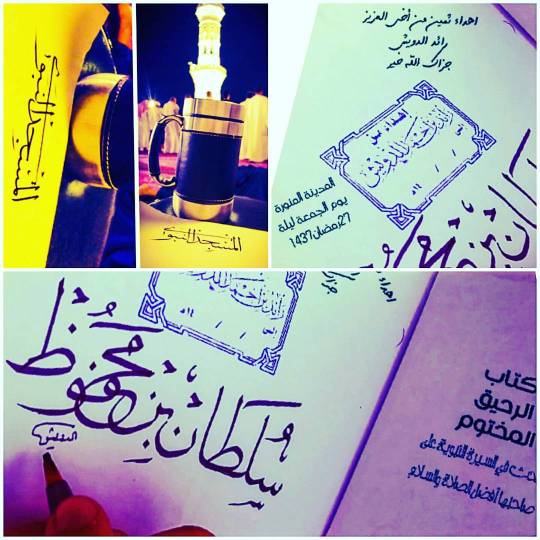 المسجد النبوي
المسجد النبوي
اهداء ثمين من أخي العزيز
رائد الدويش
جزاك الله خير
المدينة المنورة
يوم الجمعة ليلة
27رمضان1437
سلطان بن محفوظ
الدويش
كتاب
الرحيق
المختوم
بحث في السيرة النبوية على
صاحبها أفضل الصلاة والسلام